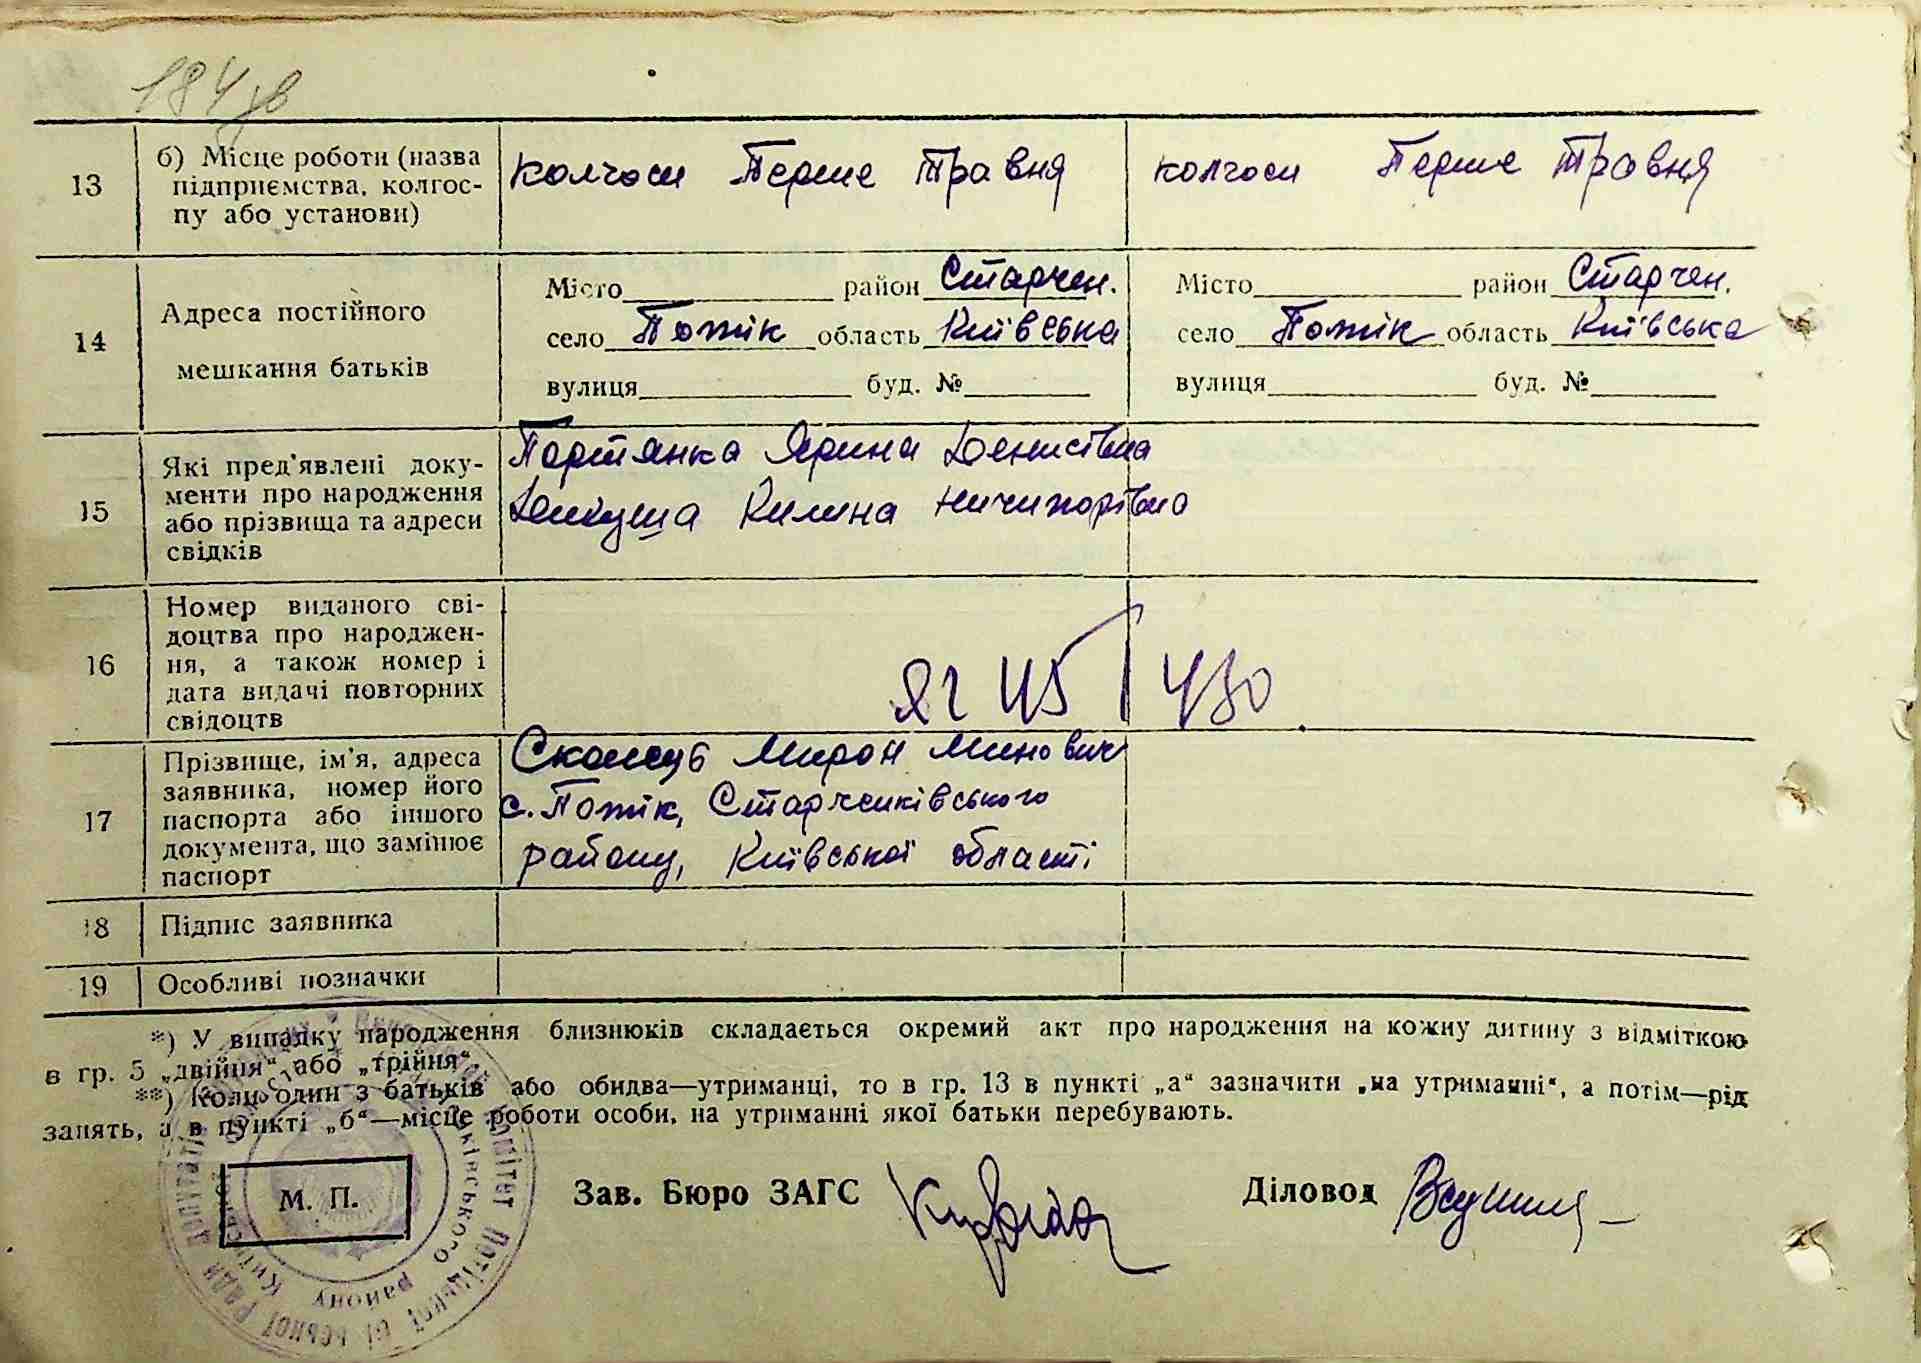 184 зв
13
б) Місце роботи (назва
підприємства, колгос-
пу або установи)
колгосп Перше Травня
колгосп Перше Травня
14
Адреса постійного
мешкання батьків
Місто район Старчен.
село Потік область Київська
вулиця буд. №
Місто район Старчен.
село Потік область Київська
вулиця буд. №
15
Які пред'явлені доку-
менти про народження
або прізвища та адреси
свідків
Портянка Ярина Денисівна
Килина Ничипорівна
16
Номер виданого сві-
доцтва про народжен-
ня, а також номер і
дата видачі повторних
свідоцтв
17
Прізвище, ім'я, адреса
заявника, номер його
паспорта або іншого
документа, що замінює
паспорт
Мирон Минович
с. Потік, Старченківського
району, Київської області
18
Підпис заявника
19
Особливі позначки
*) У випадку народження близнюків складається окремий акт про народження на кожну дитину з відміткою
в гр. 5 „двійня“ або „трійня“.
**) Коли один з батьків або обидва—утриманці, то в гр. 13 в пункті „а“ зазначити „на утриманні“, а потім—рід
занять, а в пункті „б“—місце роботи особи, на утриманні якої батьки перебувають.
М. П.
Зав. Бюро ЗАГС
Діловод